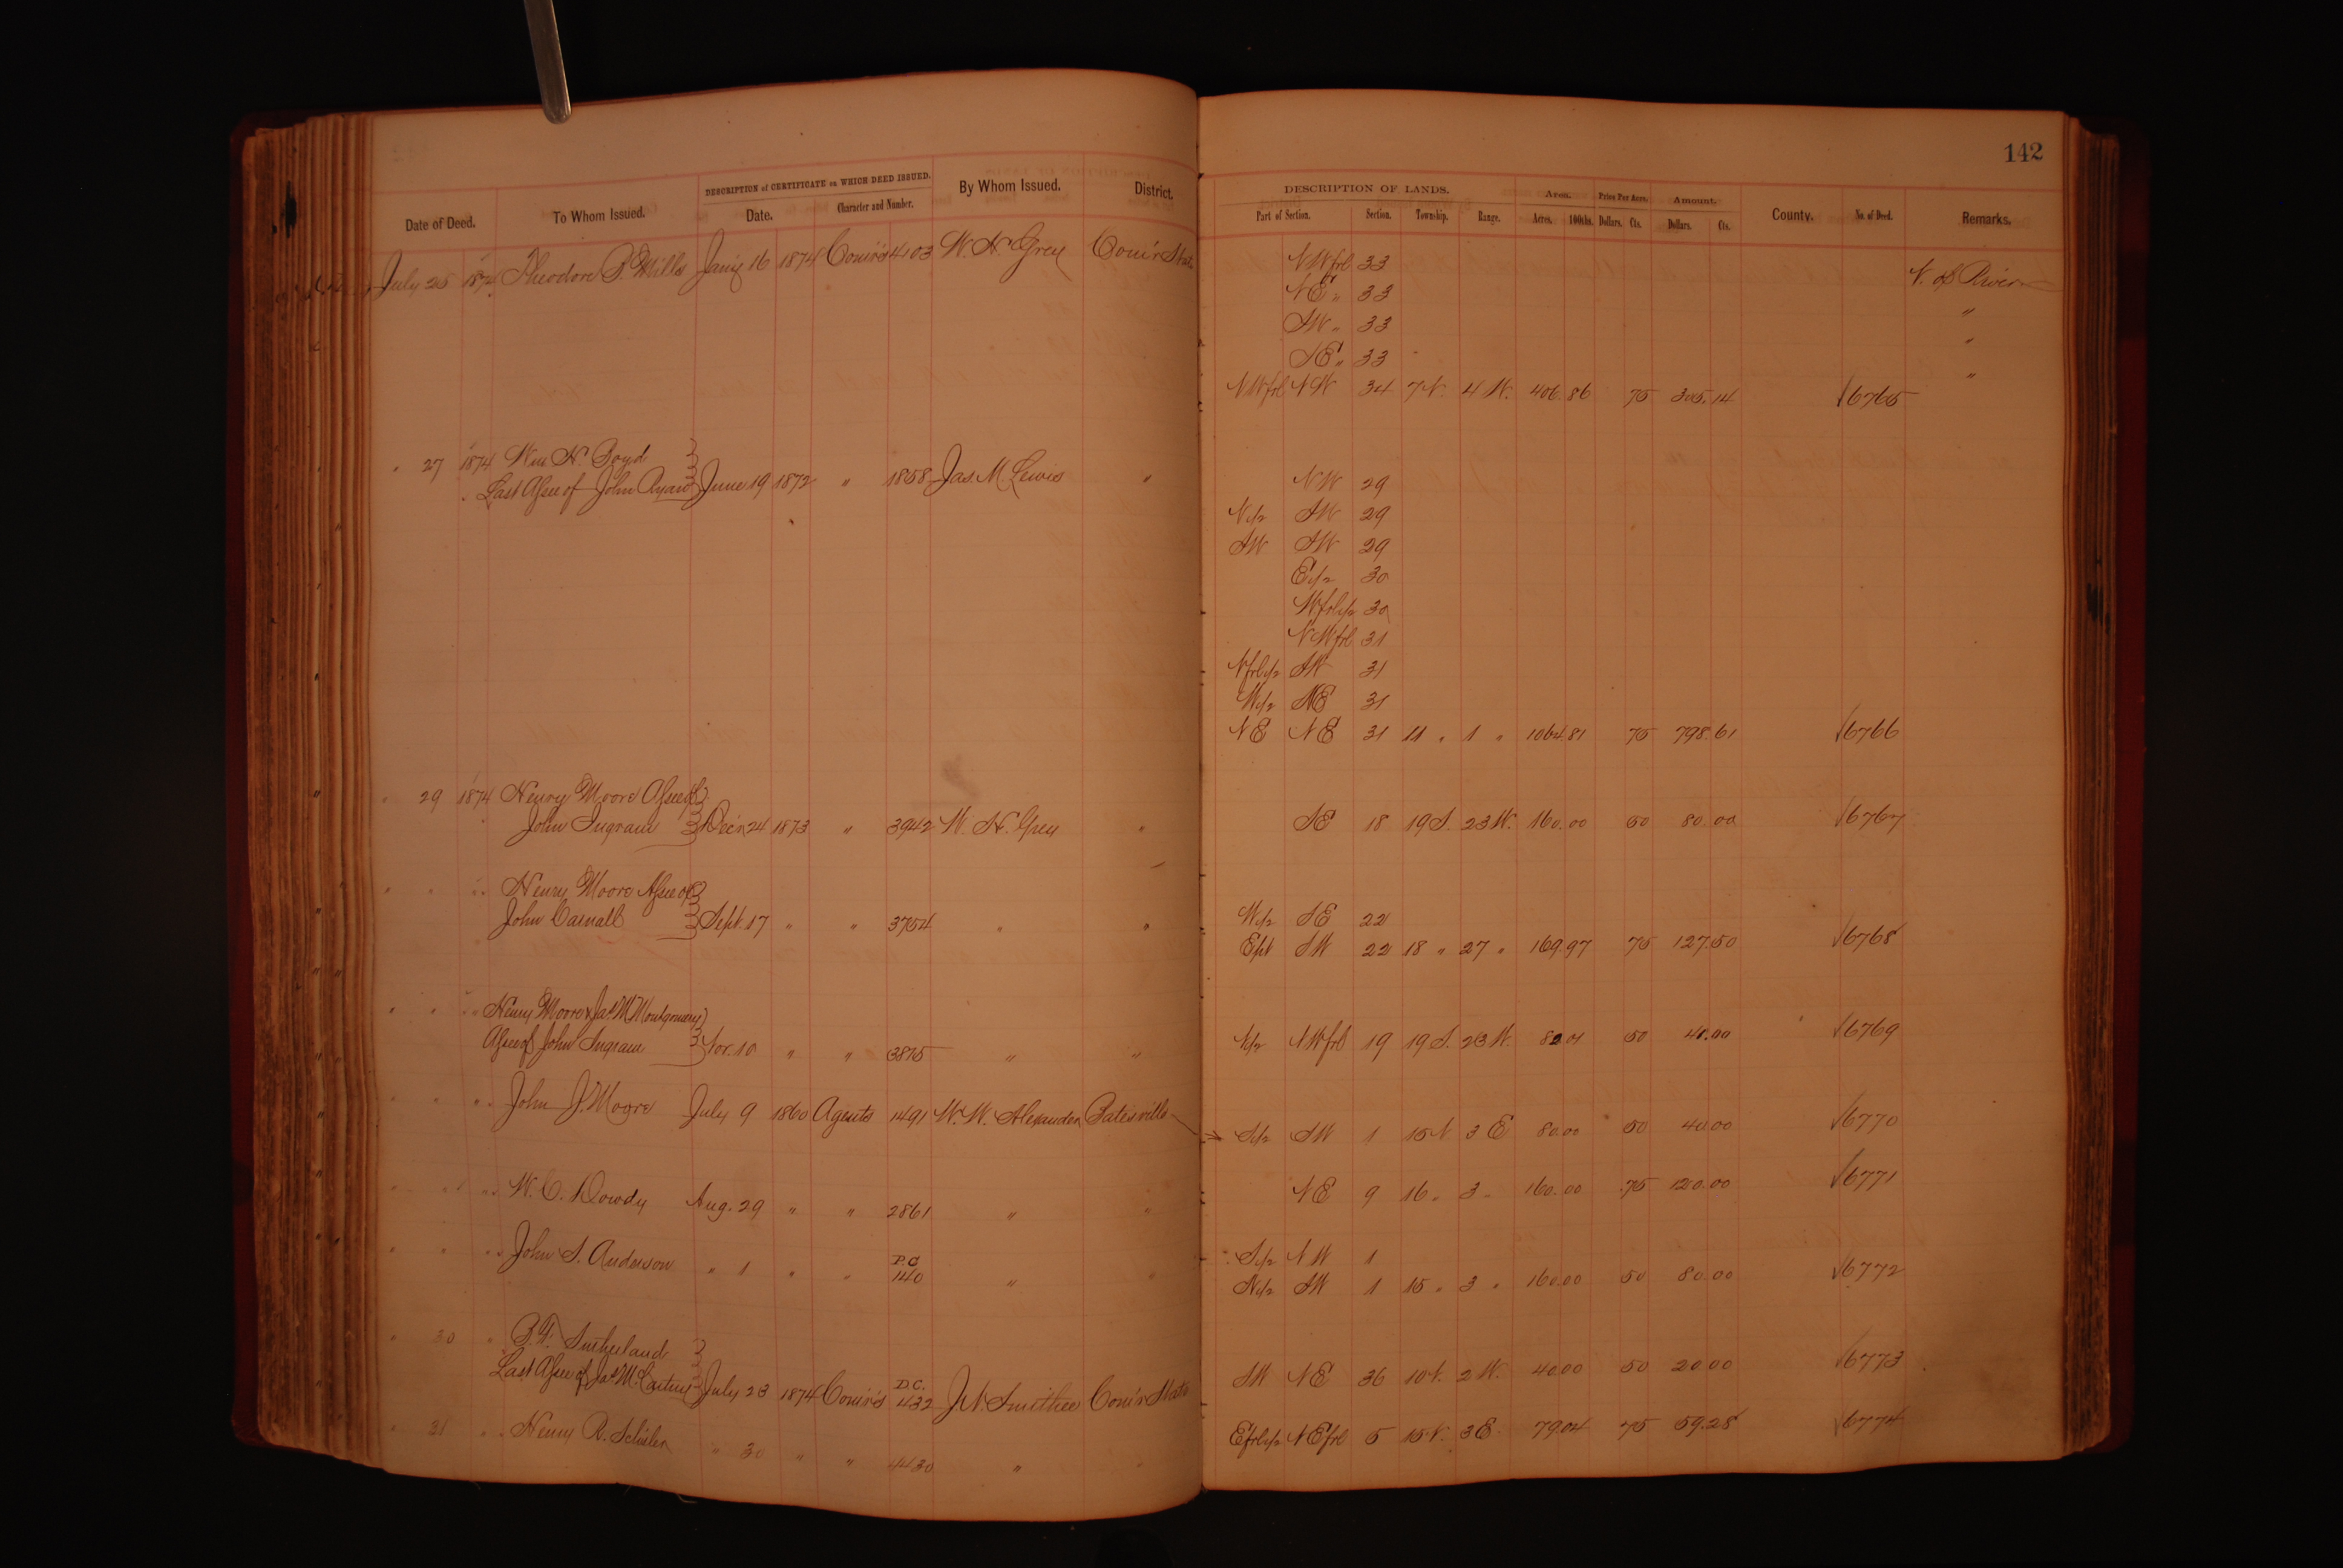 142
DESCRIPTION of CERTIFICATE on WHICH DEED ISSUED.
Date of Deed. To Whom Issued. Date. Character and Number. By Whom Issued. District.
DESCRIPTION OF LANDS. Area. Price Per Acre. Amount.
Part of Section. Section. Township. Range. Acres. 100ths. Dollars. Cts. Dollars. Cts. County. No. of Deed. Remarks.
July 25 1874 Theodore P. Mills Jan'y 16 1874 Comr's 4103 W. H. Grey Com'r State NW frl 33 N. of River
NE " 33 "
SW " 33 "
SE " 33 "
NW frl NW 34 7 N. 4 W. 406.86 75 305.14 6765
" 27 1874 Wm H. Boyd
Last Asee of John Ryan June 19 1872 " 1858 Jas. M. Lewis " NW 29
N 1/2 SW 29
SW SW 29
E 1/2 30
W frl 1/2 30
NW frl 31
N frl 1/2 SW 31
W 1/2 NE 31
NE NE 31 11 " 1 " 1064.81 75 798.61 6766
" 29 1874 Henry Moore Asee of
John Ingram Dec'r 24 1873 " 3942 W. H. Grey " SE 18 19 S. 23 W. 160.00 50 80.00 6767
" " " " Henry Moore Asee of
John Carnall Sept. 17 " " 3754 " " W 1/2 SE 22
E pt SW 22 18 " 27 " 169.97 75 127.50 6768
" " " " Henry Moore & Jas. M. Montgomery
Asee of John Ingram Nov. 10 " " 3875 " " N 1/2 NW frl 19 19 S. 23 W. 80.01 50 40.00 6769
" " " " John J. Moore July 9 1860 Agents 1491 W. W. Alexander Batesville S 1/2 SW 1 15 N. 3 E 80.00 50 40.00 6770
" " " " W. C. Dowdy Aug. 29 " " 2861 " " NE 9 16 " 3 " 160.00 .75 120.00 6771
" " " " John S. Anderson " 1 " " P.C. 140 " " S 1/2 NW 1
N 1/2 SW 1 15 " 3 " 160.00 50 80.00 6772
" 30 " B. F. Sutherland
Last Asee of Jas. M. July 23 1874 Comr's D.C. 432 J. N. Smithee Com'r State SW NE 36 10 N. 2 W. 40.00 50 20.00 6773
" 31 " " Henry R. " 30 " " 4430 " " E frl 1/2 NE frl 5 15 N. 3 E. 79.04 75 59.28 6774